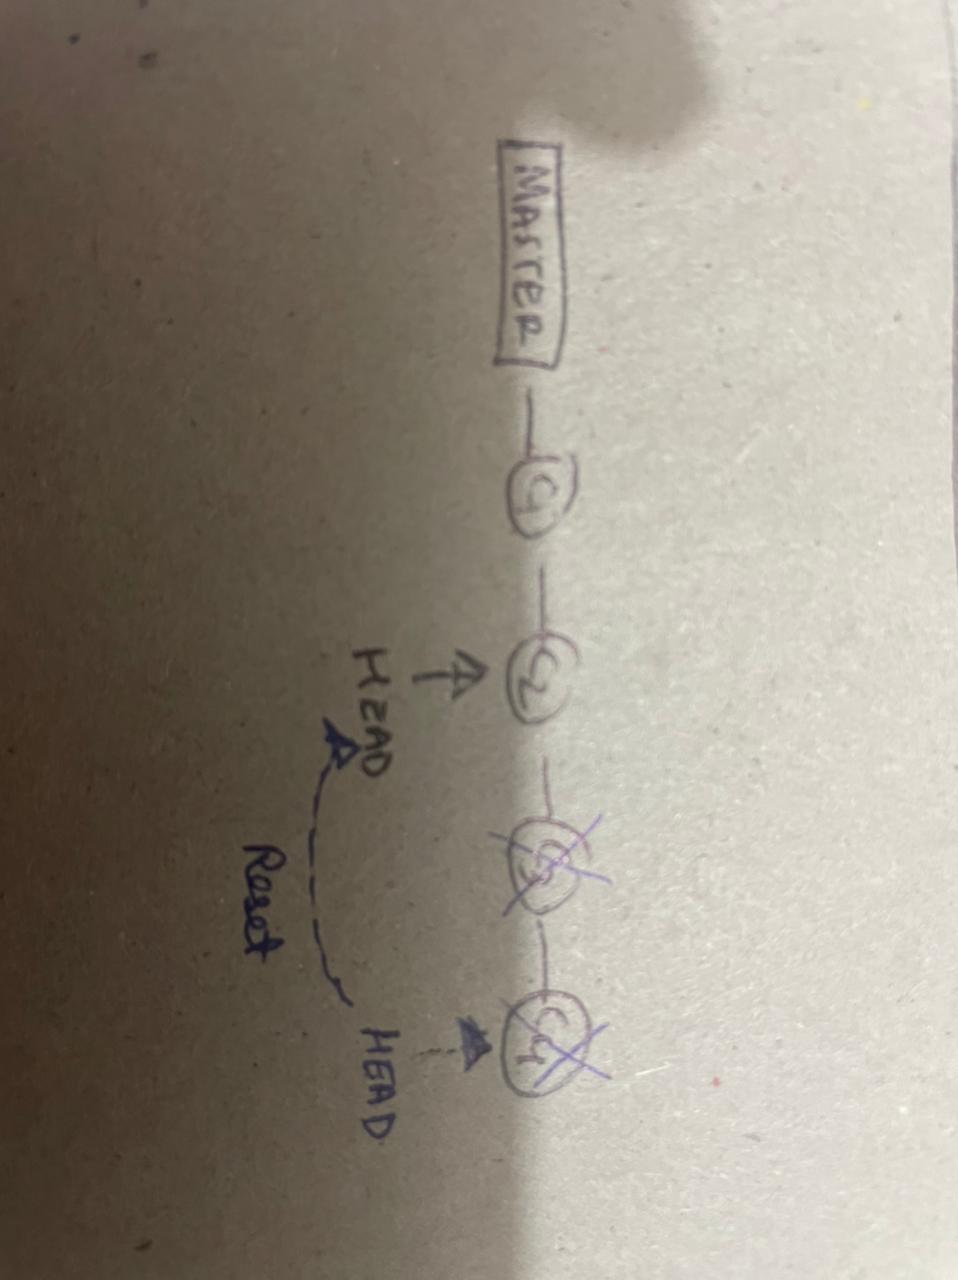 MASTER C1 C2 C3 C4
HEAD HEAD
Reset